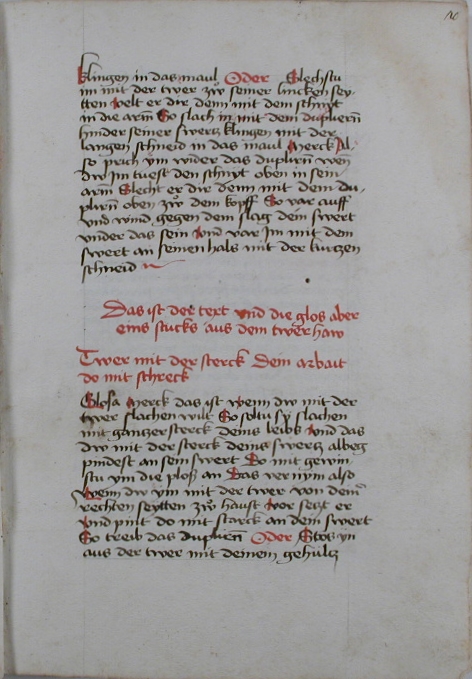 klingen in das maul Oder Slechstu
im mit der twer zw seiner lincken sey-
tten velt er dir denn mit dem schnyt
in die arm So slach in mit dem duplieren
hinder seiner swertz klingen mit der
langen schneid in das maul Merck Al-
so prich ym wider das duplirn wen
dw im tuest den schnyt oben in sein
arm Slecht er dir denn mit dem du-
plirn oben zw dem kopff So var auff
vnd wind gegen dem slag dein swert
vnder das sein Vnd var Im mit dem
swert an seinen hals mit der kurtzen
schneid
Das ist der text vnd die glos aber
eins stucks aus dem twerhaw
Twer mit der sterck Dein arbait
do mit schreck
Glosa Merck das ist wenn dw mit der
twer slachen wilt So soltu sy slachen
mit gantzer sterck deins leibs Vnd das
dw mit der sterck deins swertz albeg
pindest an sein swert Do mit gewin-
stu ym die plosz an Das vernym also
Wenn dw ym mit der twer von deiner
rechten seytten zw haust Vor setzt er
vnd pint do mit starck an dem swert
So treib das duplirn Oder Stos yn
aus der twer mit deinem gehultz